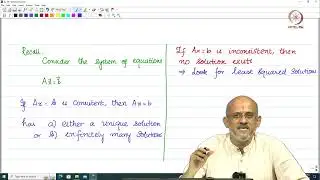 Recall
Consider the system of equations
Ax = b
If Ax = b is consistent, then Ax = b
has a) either a unique solution
or b) infinitely many solutions
If Ax = b is inconsistent, then
no solution exists
⇒ Look for Least Squared Solutions